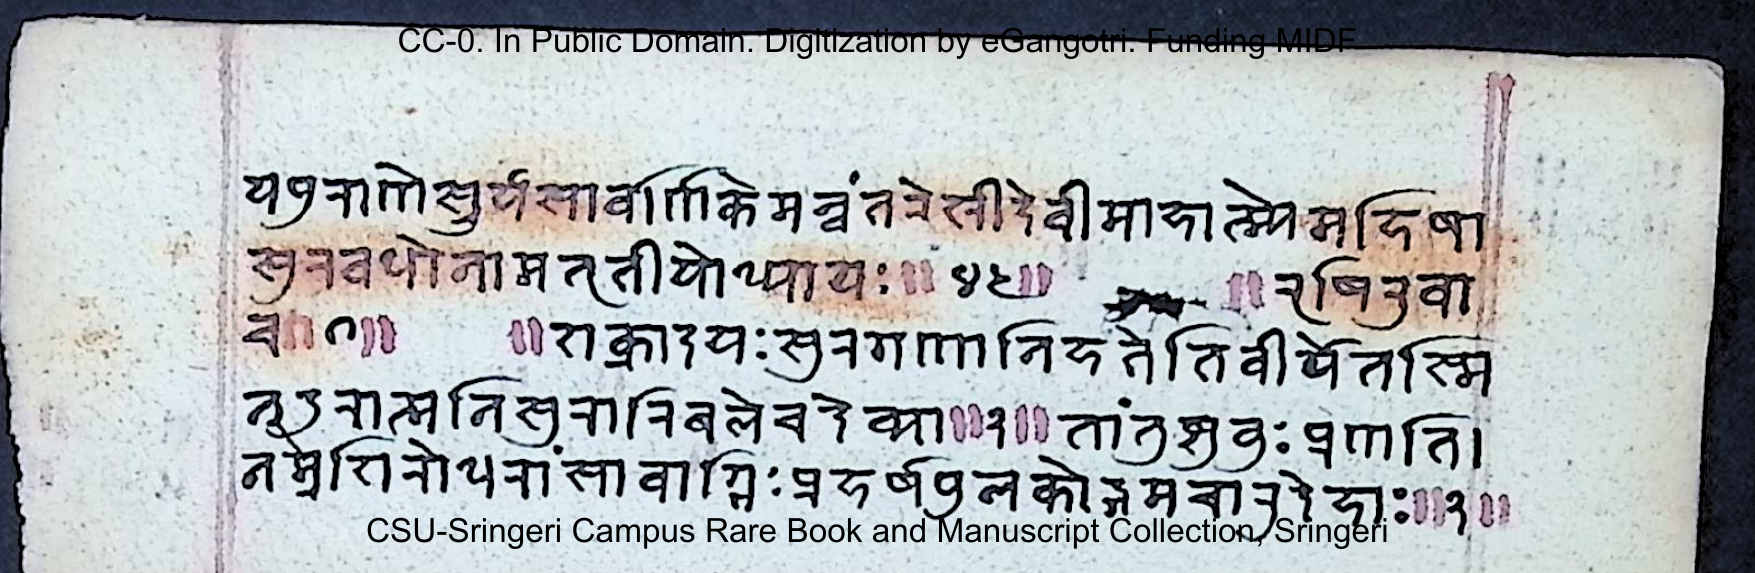 CC-0. In Public Domain. Digitization by eGangotri. Funding MIDF
यपुराणे सुर्यसावर्णिके मन्वंतरे स्रीदेवीमाहात्म्ये महिषा
सुरवधो नाम तृतीयोध्यायः॥ ४१॥ ॥ ऋषिरुवा
च॥ १॥ ॥शक्रादयः सुरगणा निहतेतिवीर्ये तस्मि
न्दुरात्मनि सुरारिबले च देव्या॥१॥ तां तुष्टुवुः प्रणति।
नम्रशिरोधरांसा वाग्भिः प्रहर्षपुलकोद्गमचारुदेहाः॥२॥
CSU-Sringeri Campus Rare Book and Manuscript Collection, Sringeri